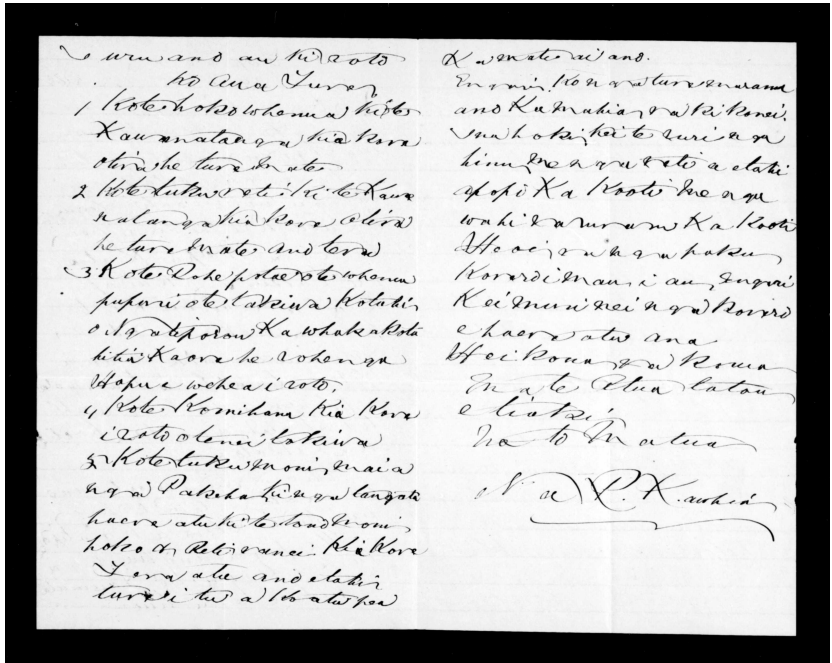 uru ano au ki roto
Ko aua Ture
1 Ko te hoko whenua ki te
Kawanatanga kia kore
otira he ture mate
2 Ko te tuku reti ki te Kawa
natanga kia kore otira
he ture mate ano tera
3 Ko te Rohe potae o te whenua
pupuri o te takiwa Kotahi
o Ngatiporou Ka whakakota
hitia Kaore he rohe nga
Hapu e wehea i roto.
4 Ko te Komihana Kia Kore
i roto o tenei takiwa
5 Ko te tuku moni mai a
nga Pakeha ki nga tangata
haere atu ki te tono moni
hoko Reti ranei Kia Kore
Tera atu ano etahi
ture i tu a
Ka mate ai ano.
Engari Ko nga ture marama
ano Ka mahia ra ki konei.
ina hoki kei te ruri nga
hinu me nga reti a etahi
Ka Kooti me nga
wahi raruraru Ka Kooti
Heoi ra nga
Korero i mau i au, engari
Kei muri nei nga korero
e haere atu ana
Hei kona ra koma
Ma te Atua tatou
e tiaki
Na to Matua
Na P. Kawhia